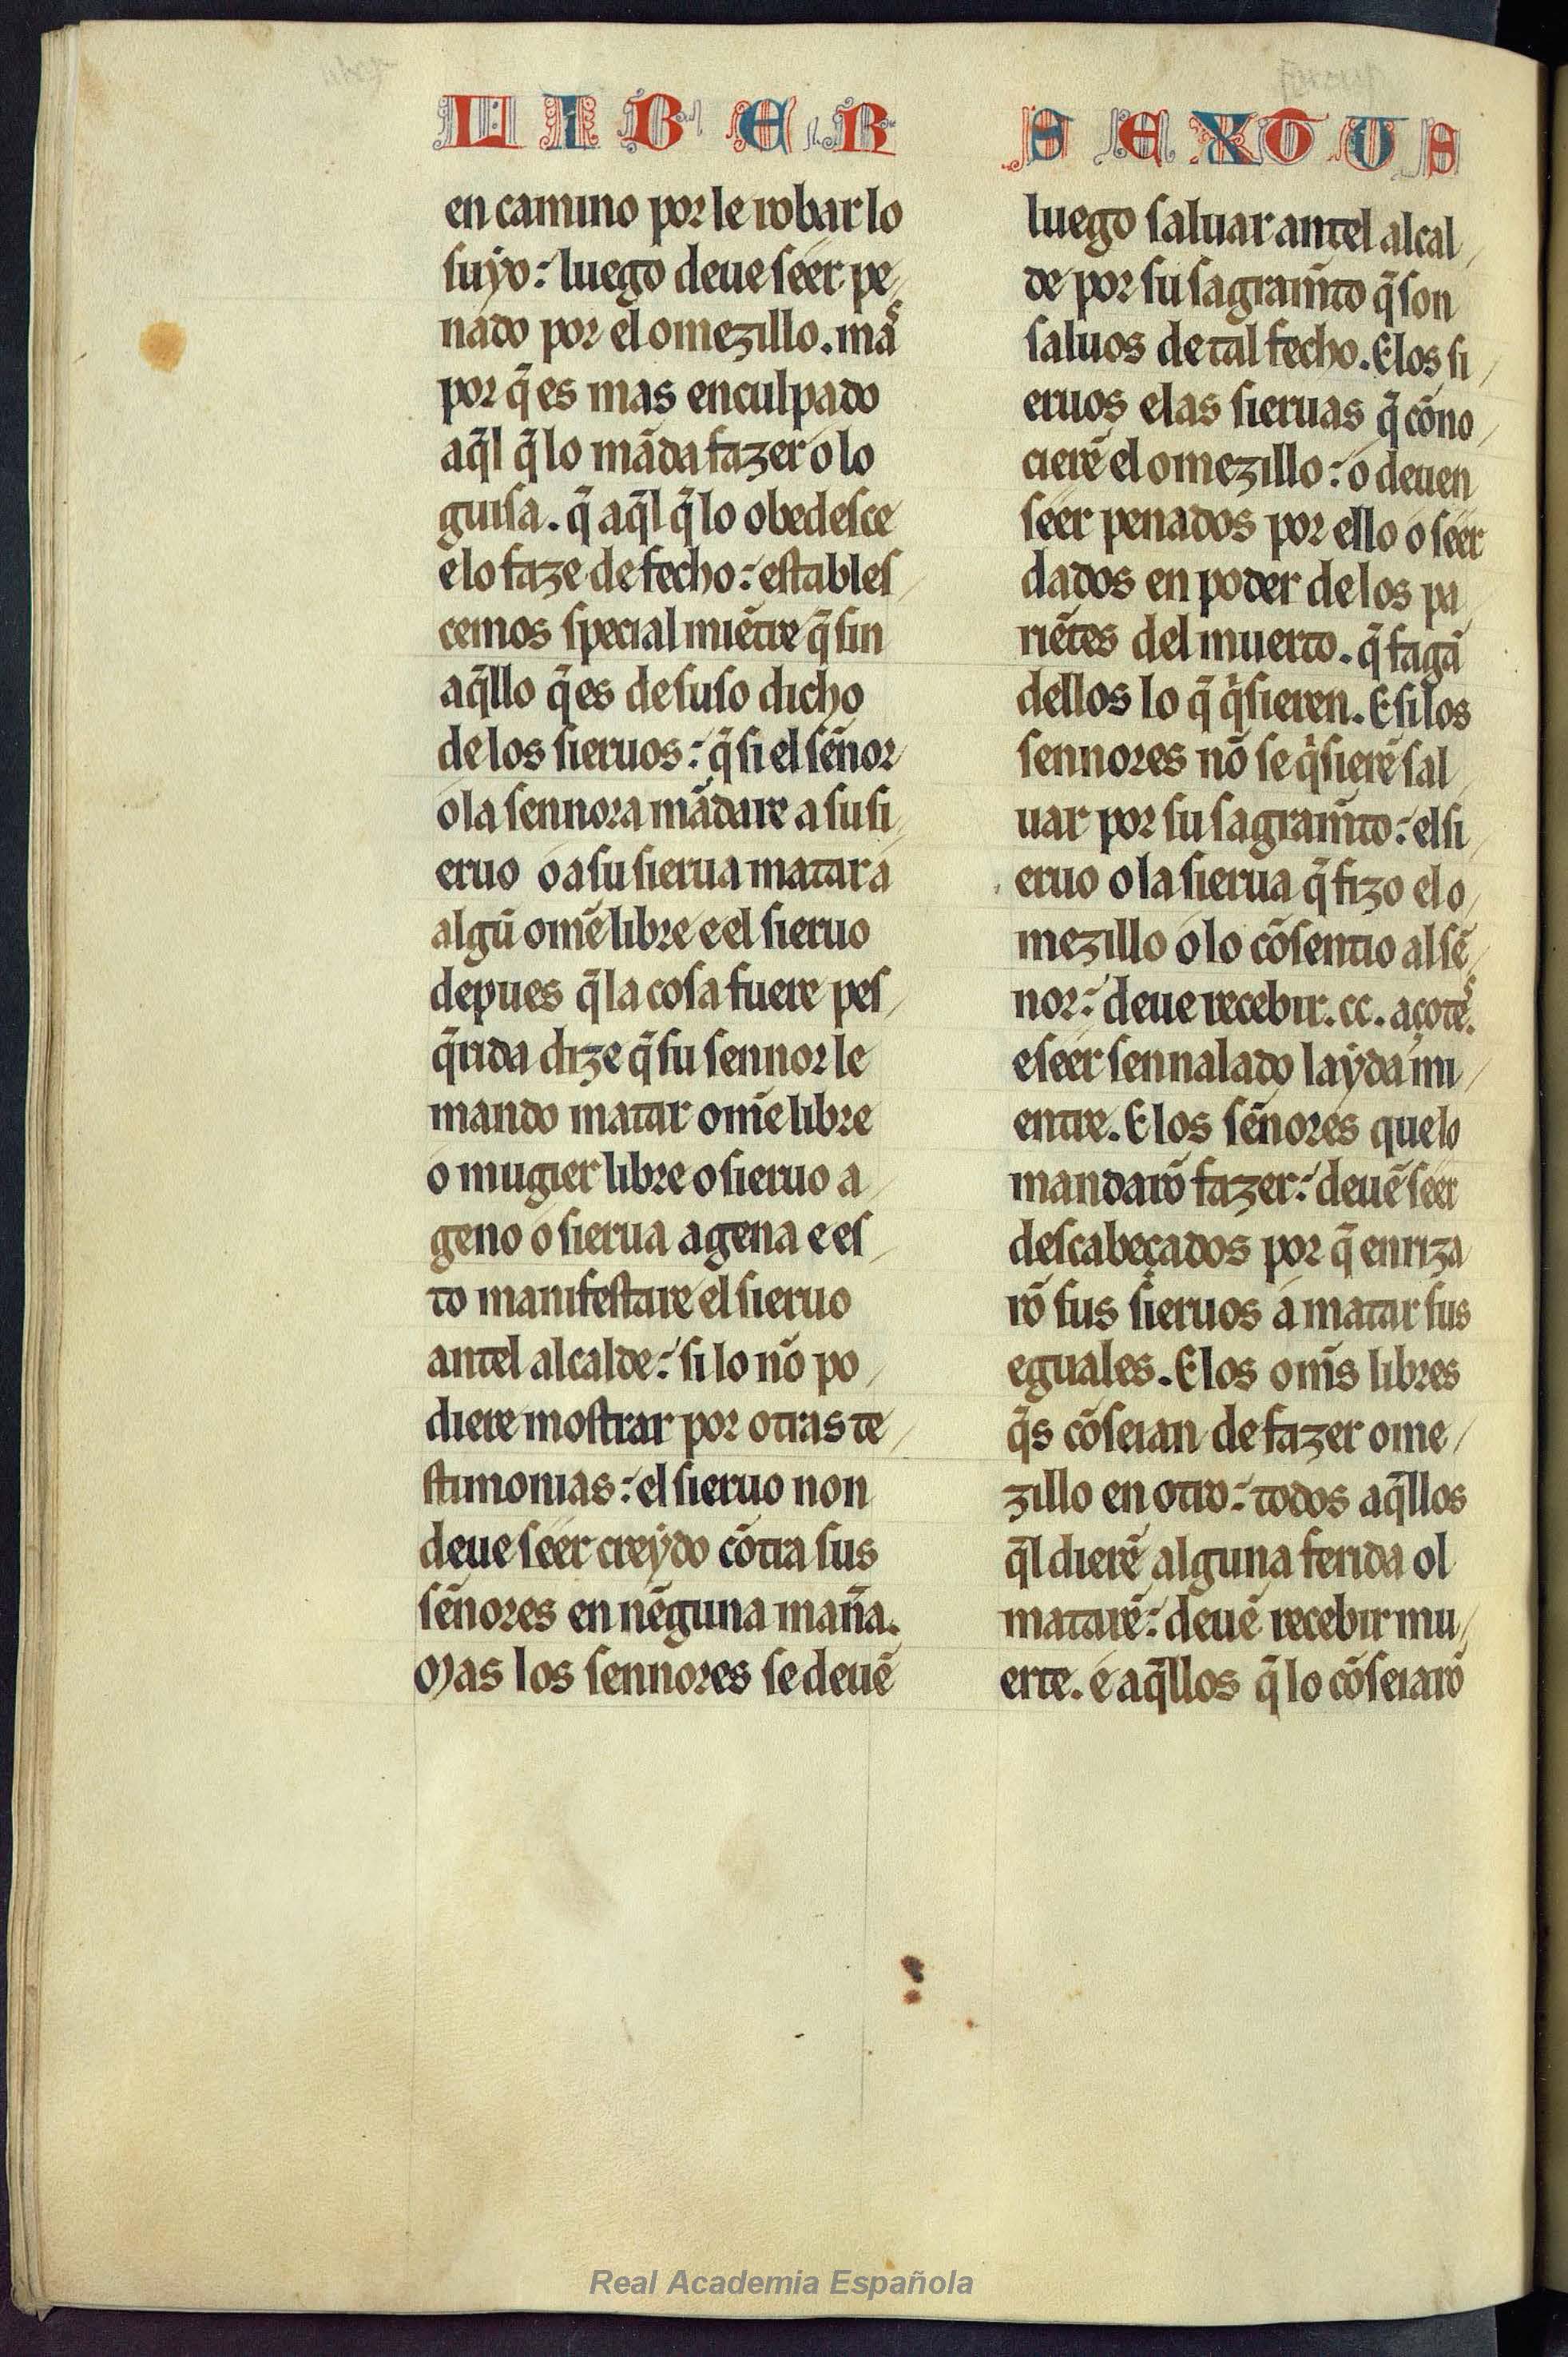 LIBER
en camino por le robar lo
suẏo: luego deue seer pe
nado por el omezillo. maˢ
por q̃ es mas enculpado
aq̃l q̃ lo mãda fazer o lo
guisa. q̃ aq̃l q̃ lo obedesce
e lo faze de fecho: establesˊ
cemos special miẽtre q̃ sin
aq̃llo q̃ es de suso dicho
de los sieruos: q̃ si el sẽnor
o la sennora mãdare a su si
eruo o a su sierua matar a
algũ om̃e libre e el sieruo
depues q̃ la cosa fuere pes
q̃rida dize q̃ su sennor le
mando matar om̃e libre
o mugier libre o sieruo a
geno o sierua agena e es
to manifestare el sieruo
antel alcalde: si lo nõ po
diere mostrar por otras te
stimonias: el sieruo non
deue seer creẏdo cõtra sus
sẽnores en nẽguna maña.
Mas los sennores se deuẽ
SEXTUS
luego saluar antel alcal
de por su sagram̃to q̃ son
saluos de tal fecho. E los si
eruos e las sieruas q̃ cõno
cierẽ el omezillo: o deuen
seer penados por ello o seer
dados en poder de los pa
riẽtes del muerto. q̃ fagã
dellos lo q̃ qͥsieren. E si los
sennores nõ se qͥsierẽ sal
uar por su sagram̃to: el si
eruo o la sierua q̃ fizo el o
mezillo o lo cõsentio al sẽ
nor: deue recebir. cc. açoteˢ.
e seer sennalado laẏda mi
entre. E los sẽnores que lo
mandarõ fazer: deuẽ seer
descabeçados por q̃ enriza
rõ sus sieruos a matar sus
eguales. E los om̃s libres
q̃s cõseian de fazer ome
zillo en otro: todos aq̃llos
q̃l dierẽ alguna ferida ol
matarẽ: deuẽ recebir mu
erte. e aq̃llos q̃ lo cõseiarõ
Real Academia Española